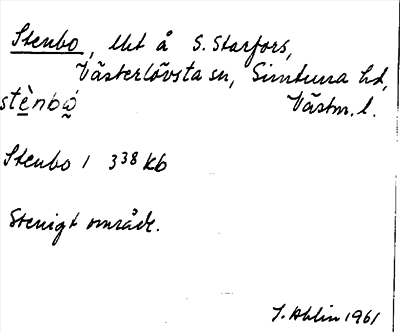 Stenbo, lht å S. Starfors,
Västerlövsta sn, Simtuna hd,
stènbὼ Västm. l.
Stenbo 1 338 kb
Stenigt område.
J. Ahlin 1961